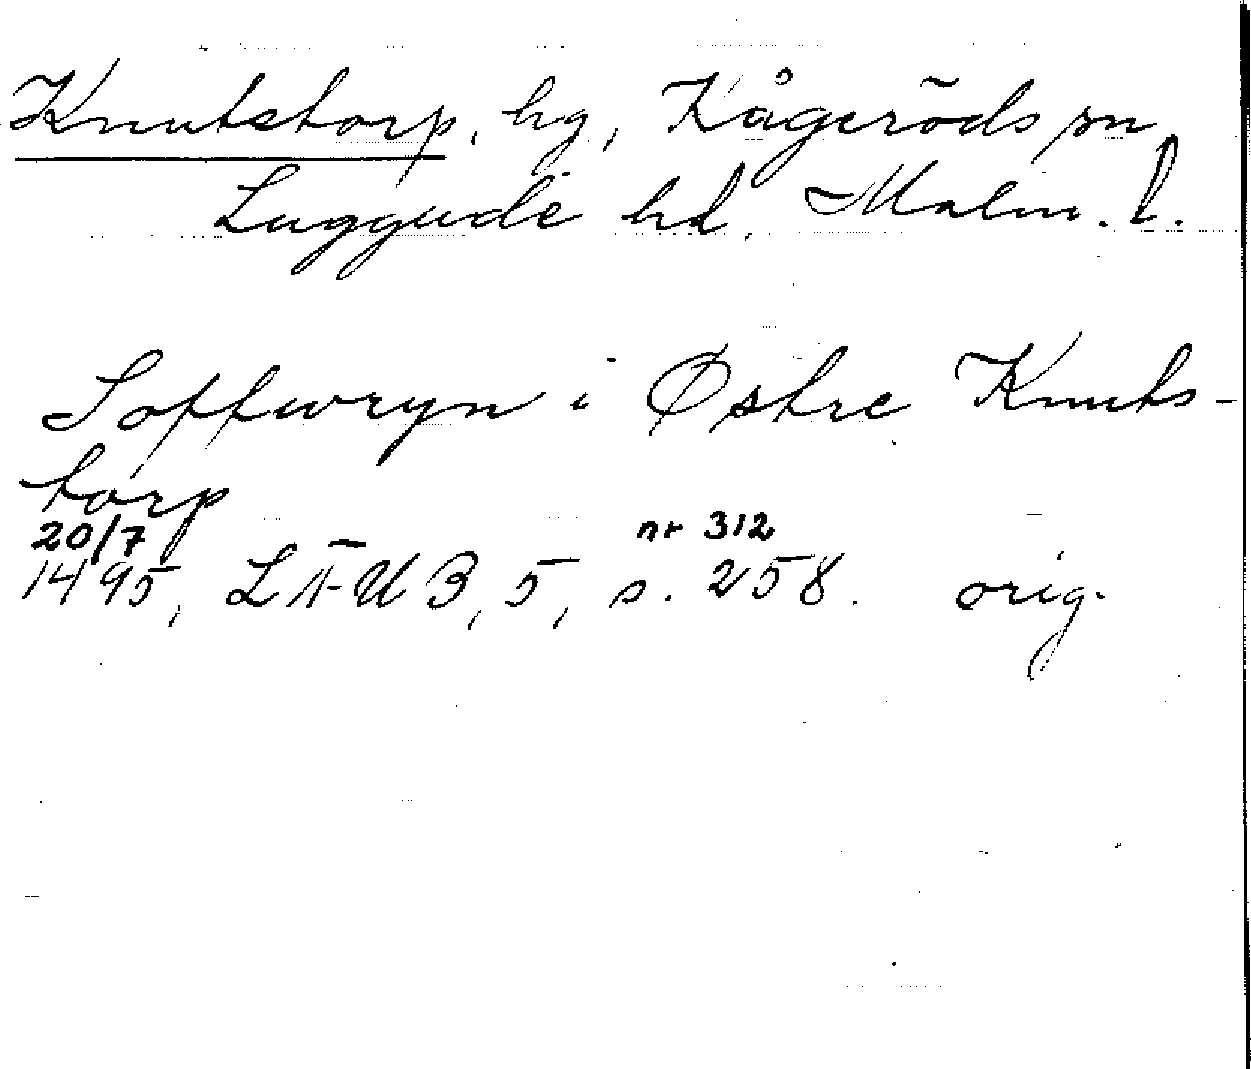 Knutstorp, hg, Kågeröds sn
Luggude hd, Malm. l.
Soffwryn i Østre Knuts-
torp
20/7 nr 312
1495, LÄUB, 5, s. 258. orig.